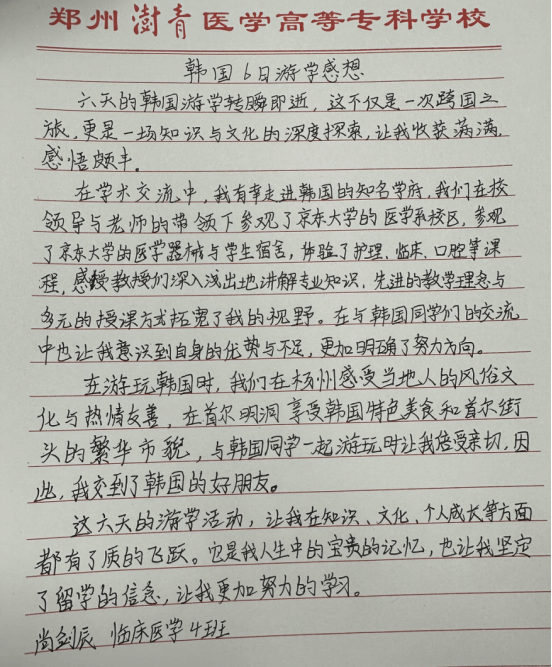 郑州澍青医学高等专科学校
韩国6日游学感想
六天的韩国游学转瞬即逝，这不仅是一次跨国之
旅，更是一场知识与文化的深度探索，让我收获满满，
感悟颇丰。
在学术交流中，我有幸走进韩国的知名学府，我们在校
领导与老师的带领下参观了京东大学的医学系校区，参观
了京东大学的医学器械与学生宿舍，体验了护理、临床、口腔等课
程，感授教授们深入浅出地讲解专业知识，先进的教学理念与
多元的授课方式拓宽了我的视野。在与韩国同学们的交流
中也让我意识到自身的优势与不足，更加明确了努力方向。
在游玩韩国时，我们在杨州感受当地人的风俗文
化与热情友善，在首尔明洞享受韩国特色美食和首尔街
头的繁华市貌，与韩国同学一起游玩时让我倍受亲切，因
此，我交到了韩国的好朋友。
这六天的游学活动，让我在知识、文化、个人成长等方面
都有了质的飞跃。它是我人生中的宝贵的记忆，也让我坚定
了留学的信念，让我更加努力的学习。
尚剑辰 临床医学4班